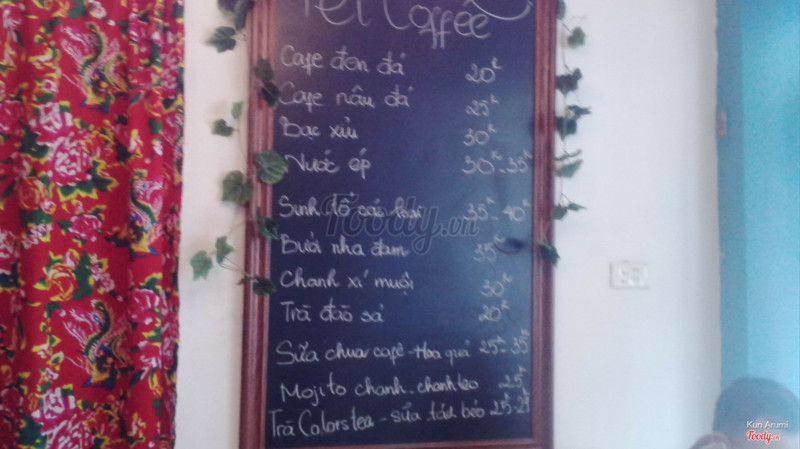 Tet Coffee
Cafe đen đá 20k
Cafe nâu đá 25k
Bạc xỉu 30k
Nước ép 30k-35k
Sinh tố các loại 35k-40k
Bưởi nha đam 35k
Chanh xí muội 30k
Trà đào sả 20k
Sữa chua cafê-Hoa quả 25k-35k
Mojito chanh-chanh leo 25k
Trà Colorstea-sữa tách béo
Foody.vn
Kun Arumi
Foody.vn